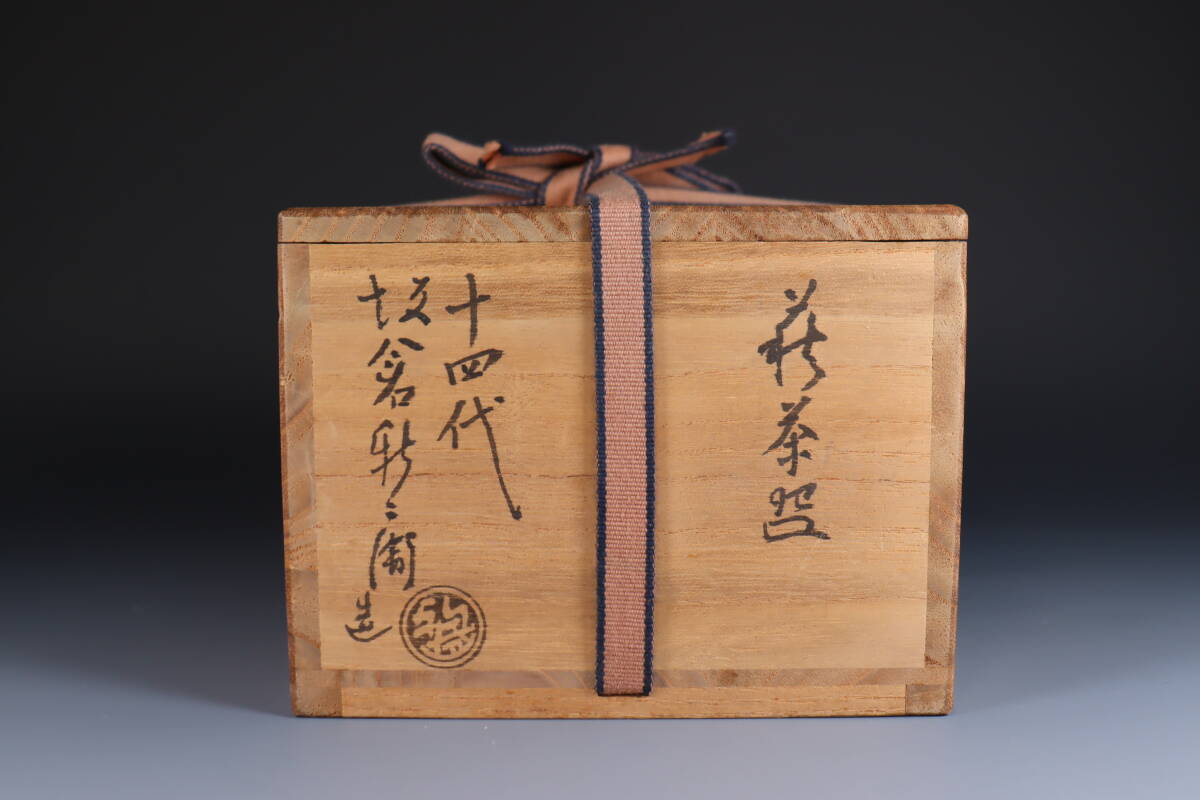 萩茶器
十四代
坂倉新兵衛造